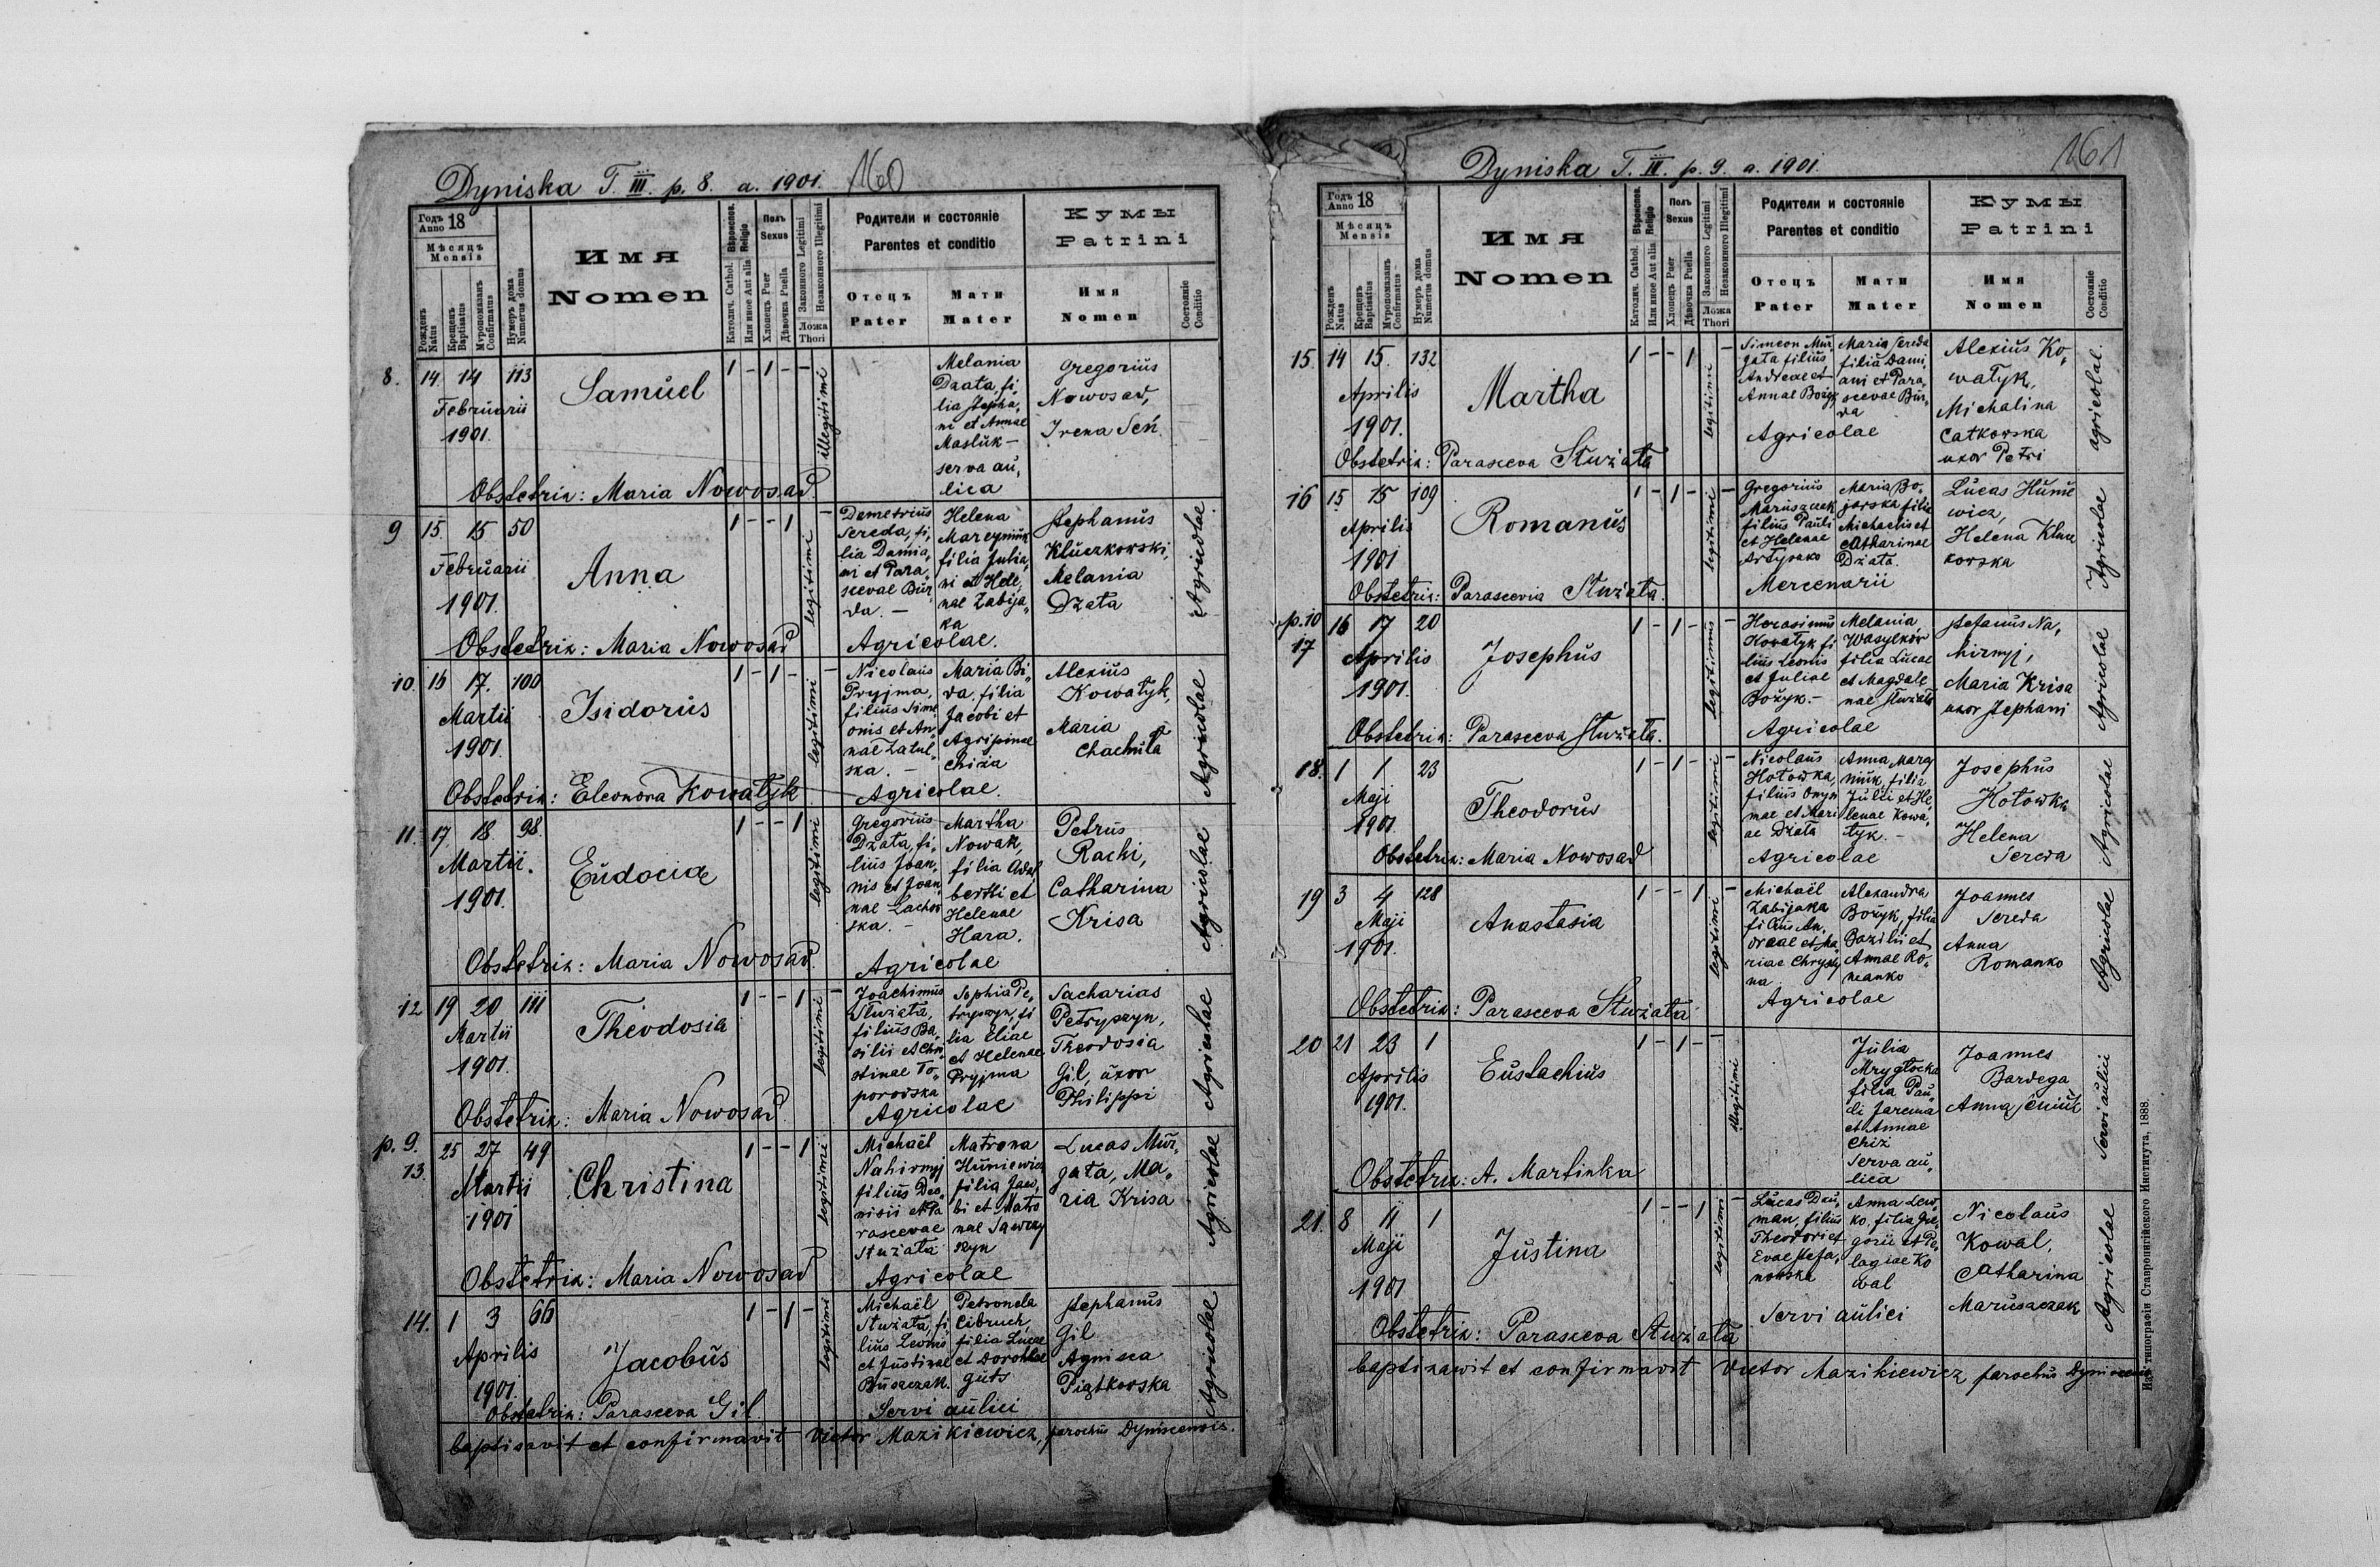 Dyniska T. III. p. 8. a. 1901. 160
Годъ Anno 18
Мѣсяцъ Mensis
Рожденъ Natus
Крещенъ Baptisatus
Мѵропомазанъ Confirmatus
Нумеръ дома Numerus domus
Имя
Nomen
Вѣроиспов. Religio
Католич. Cathol.
Или иное Aut alia
Полъ
Sexus
Хлопецъ Puer
Дѣвочка Puella
Законного Legitimi
Незаконного Illegitimi
Ложа
Thori
Родители и состояніе
Parentes et conditio
Отецъ
Pater
Мати
Mater
Кумы
Patrini
Имя
Nomen
Состояніе
Conditio
8. 14 14 113
Februarii
1901.
Samuel
1 - 1 - -
illegitimi
Melania
Dzata, fi„
lia Stepha„
ni et Annae
Masluk –
serva au„
lica
Gregorius
Nowosad,
Irena Seń
Obstetrix: Maria Nowosad.
9 15. 15 50
Februarii
1901.
Anna
1 - - 1 -
legitimi
Demetrius
Sereda, fi„
lia Damia„
ni et Para„
scevae Bur„
da. –
Helena
Marcyniuk
filia Julia„
ni et Hele„
nae Zabija„
ka
Agricolae.
Stephanus
Kluczkowski,
Melania
Dzata
Agricolae
Obstetrix: Maria Nowosad
10. 16 17. 100
Martii
1901.
Isidorus
1 - 1 - -
legitimi
Nicolaus
Pryjma,
filius Sime„
onis et An„
nae Zatul„
ska. –
Maria Bi„
da, filia
Jacobi et
Agripinae
Chiża
Agricolae.
Alexius
Kowatyk,
Maria
Chachuła
Agricolae
Obstetrix: Eleonora Kowatyk
11. 17 18 98
Martii.
1901.
Eudocia
1 - - 1
legitimi
Gregorius
Dzata, fi„
lius Joan„
nis et Joan„
nae Lachow
ska. –
Martha
Nowak,
filia Adal
berti et
Helenae
Hara.
Agricolae
Petrus
Racki,
Catharina
Krisa
Agricolae
Obstetrix: Maria Nowosad.
12 19 20 111
Martii
1901.
Theodosia
1 - - 1 -
legitimi
Joachimus
Stużata,
filius Ba„
silii et Chri
stinae To„
porowska
Sophia Pe„
tryszyn, fi
lia Eliae
et Helenae
Pryjma
Agricolae
Sacharias
Petryszyn,
Theodosia
Gil, uxor
Philippi
Agricolae
Obstetrix: Maria Nowosad
p. 9.
13. 25 27 49
Martii
1901
Christina
1 - - 1
legitimi
Michaël
Nahirnyj
filius Dio„
nisii et Pa
rascevae
Stużata
Matrona
Huniewicz
filia Jaco„
bi et Matro
nae Sawczy
szyn
Agricolae
Lucas Mur„
gata, Ma„
ria Krisa
Agricolae
Obstetrix: Maria Nowosad
14. 1 3 66
Aprilis
1901.
Jacobus
1 - 1 -
legitimi
Michaël
Stużata, fi
lius Leonis
et Justinae
Busaczak.
Petronela
Cibruch,
filia Lucae
et Dorotheae
Guts
Servi aulici
Stephanus
Gil
Agnisca
Piątkowska
Agricolae
Obstetrix: Parasceva Gil.
baptisavit et confirmavit Victor Mazikiewicz, parochus Dyniscensis.
Dyniska T. III. p. 9. a. 1901. 161
Годъ Anno 18
Мѣсяцъ Mensis
Рожденъ Natus
Крещенъ Baptisatus
Мѵропомазанъ Confirmatus
Нумеръ дома Numerus domus
Имя
Nomen
Вѣроиспов. Religio
Католич. Cathol.
Или иное Aut alia
Полъ
Sexus
Хлопецъ Puer
Дѣвочка Puella
Законного Legitimi
Незаконного Illegitimi
Ложа
Thori
Родители и состояніе
Parentes et conditio
Отецъ
Pater
Мати
Mater
Кумы
Patrini
Имя
Nomen
Состояніе
Conditio
15. 14 15. 132
Aprilis
1901.
Martha
1 - - 1 -
legitimi
Simeon Mur
gata filius
Andreae et
Annae Bożyk
Maria Sereda
filia Dami„
ani et Para„
scevae Bur„
da
Agricolae
Alexius Ko„
watyk,
Michalina
Catkowska
uxor Petri
agricolae.
Obstetrix: Parasceva Stużata
16 15 15 109
Aprilis
1901
Romanus
1 - 1 - -
legitimi
Gregorius
Maruszczak
filius Pauli
et Helenae
Artysako
Maria Bo„
jarska filia
Michaelis et
Catharinae
Dzata.
Mercenarii
Lucas Hunie
wicz,
Helena Klucz
kowska
Agricolae
Obstetrix: Parascevia Stużata.
p. 10
17 16 17 20
Aprilis
1901.
Josephus
1 - 1 - -
legitimus
Herasimus
Kowatyk fi
lius Leonis
et Juliae
Bożyk. –
Melania
Wasylków
filia Lucae
et Magdale
nae Stużata
Agricolae
Stefanus Na„
hirnyj,
Maria Krisa
uxor Stephani
Agricolae
Obstetrix: Parasceva Stużata.
18. 1 1 23
Maji
1901.
Theodorus
1 - 1 - -
legitimi
Nicolaus
Hołowka,
filius Onym
mae et Mari
ae Dzata
Anna Marcy
niuk, filia
Julii et He„
lenae Kowa„
tyk. –
Agricolae
Josephus
Hołowka
Helena
Sereda
Agricolae
Obstetrix: Maria Nowosad
19 3 4 128
Maji
1901.
Anastasia
1 - - 1 -
legitimi
Michaël
Zabijaka
filius An„
dreae et Ma„
riae Chrysty
na
Alexandra
Bożyk, filia
Bazilii et
Annae Ro„
manko
Agricolae
Joannes
Sereda
Anna
Romanko
Agricolae
Obstetrix: Parasceva Stużata
20 21 23 1
Aprilis
1901.
Eustachius
1 - 1 -
illegitimi
Julia
Mryglocka
filia Pau„
li Jarema
et Annae
Chiz
Serva au„
lica
Joannes
Bardega
Anna Seniuk
Servi aulici
Obstetrix: A. Martinka
21. 8 11 1
Maji
1901
Justina
1 - - 1 -
legitimi
Lucas Dau„
man, filius
Theodori et
Evae Stefa„
nowska
Anna Lew„
ko, filia Gre„
gorii et Pe„
lagiae Ko
wal
Servi aulici
Nicolaus
Kowal,
Catharina
Maruszczak
Agricolae
Obstetrix: Parasceva Stużata
baptizavit et confirmavit Victor Mazikiewicz parochus Dyniscensis
Изъ типографіи Ставропигійского Института, 1888.